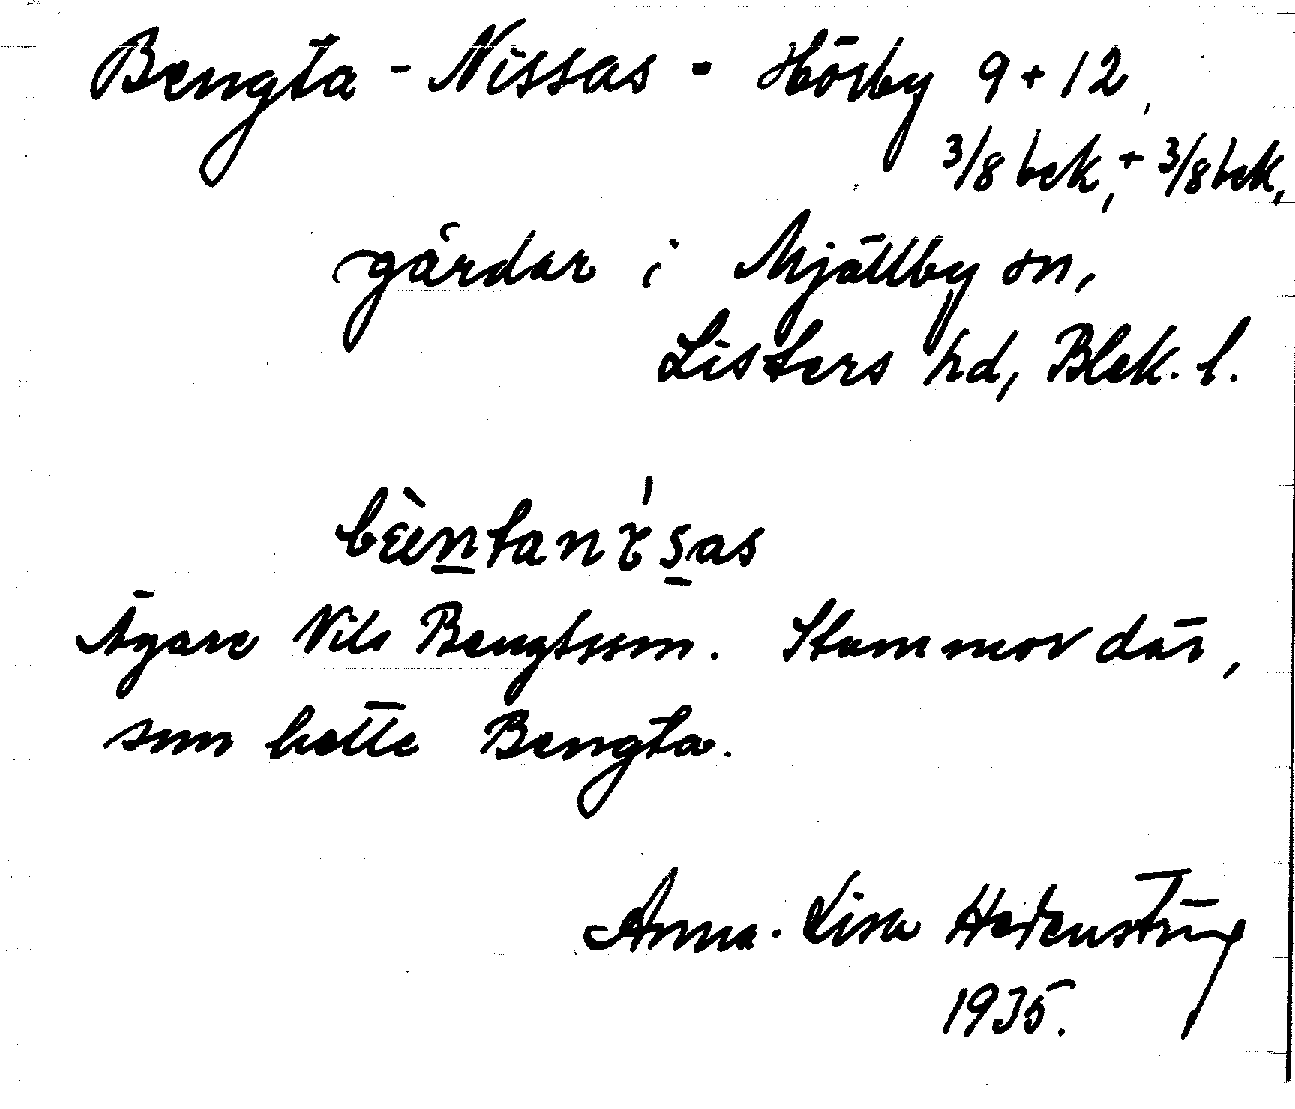 Bengta - Nissas - Hörby 9 + 12,
3/8 bek, + 3/8 bek,
gårdar i Mjällby sn,
Listers hd, Blek. l.
Ägare Nils Bengtsson. Stammor där,
som hette Bengta.
Anna-Lisa
1935.